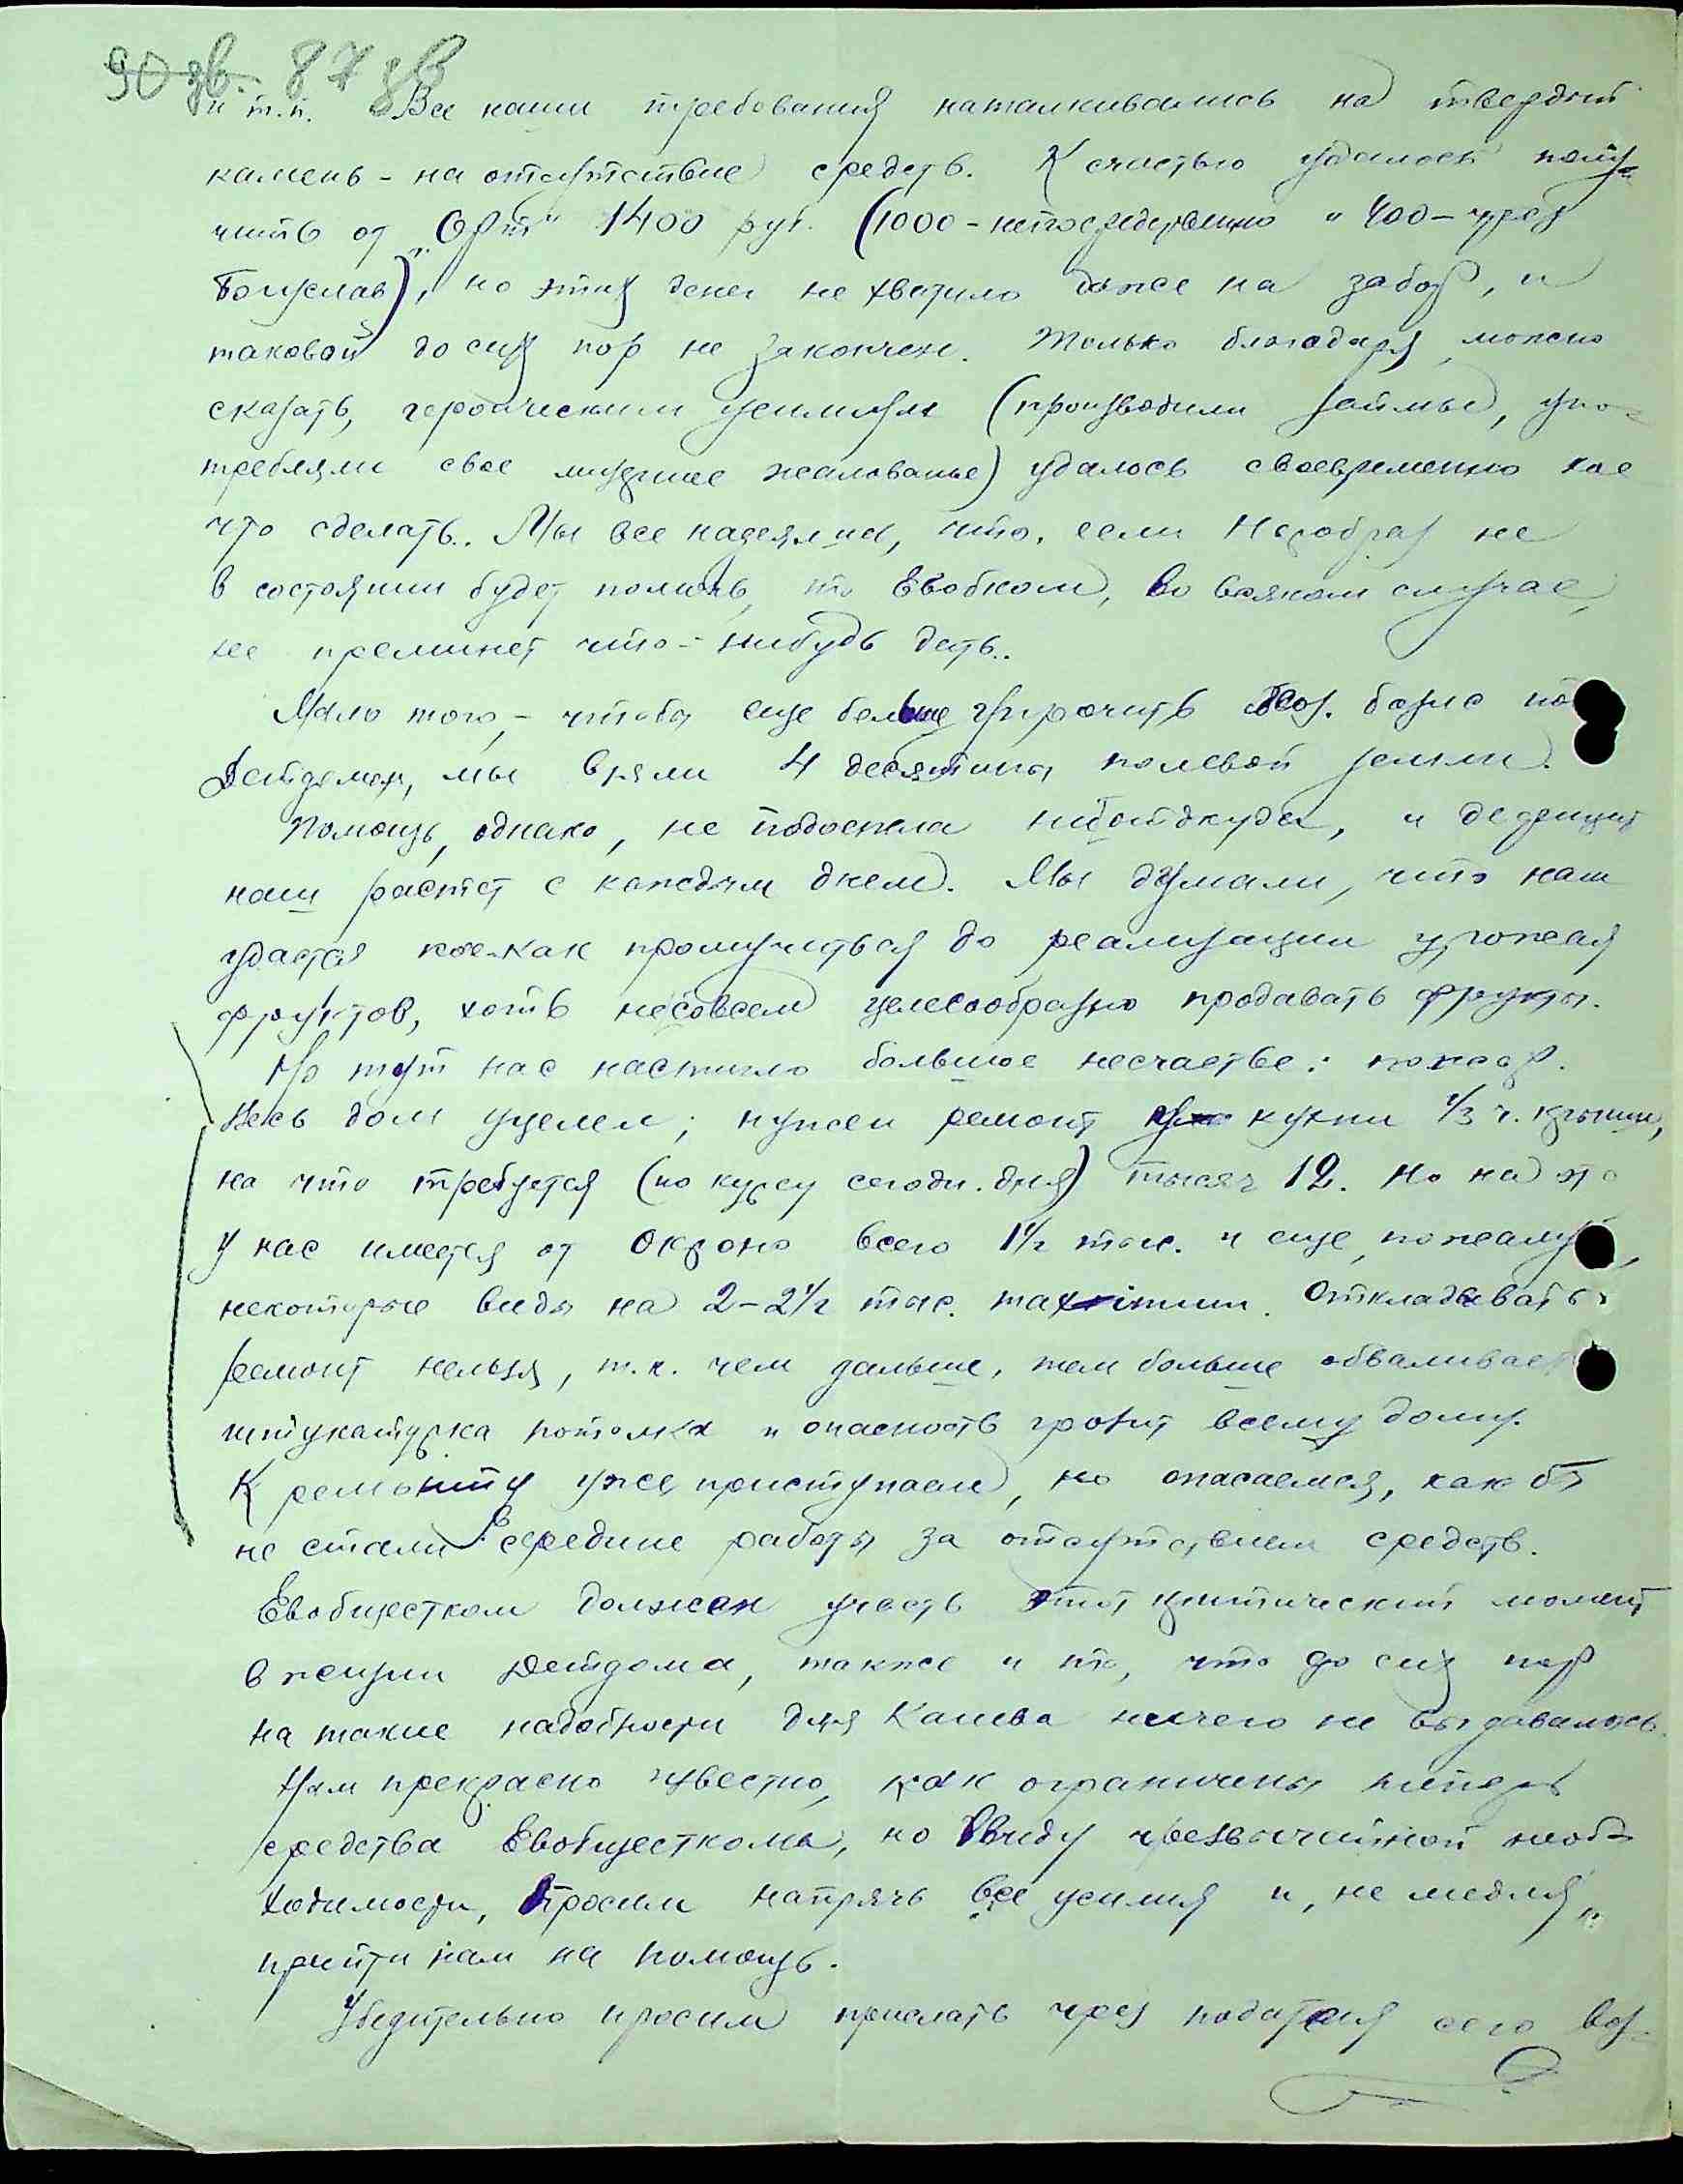 90 зв. 87 зв
и т.п. Все наши требования наталкивались на твердый
камень - на отсутствие средств. К счастью удалось полу-
чить от „Орт" 1400 руб. (1000 - непосредственно и 400 - через
Богуслав), но этих денег не хватило даже на забор, и
таковой до сих пор не закончен. Только благодаря, можно
сказать, героическим усилиям (производили займы, упо-
требляли свое мизерное жалованье) удалось своевременно кое
что сделать. Мы все надеялись, что, если Наробраз не
в состоянии будет помочь, то Евобком, во всяком случае,
не преминет что-нибудь дать.
Мало того, - чтобы еще больше упрочить хоз. базис
Детдома, мы взяли 4 десятины полевой земли.
Помощь, однако, не подоспела ниоткуда, и дефицит
наш растет с каждым днем. Мы думали, что нам
удастся кое-как промучиться до реализации урожая
фруктов, хоть не совсем целесообразно продавать фрукты.
Но тут нас настигло большое несчастье: пожар.
Весь дом уцелел; нужен ремонт кухни 1/3 ч. крыши,
на что требуется (по курсу сегодн. дня) тысяч 12. Но на это
у нас имеется от Окроно всего 1½ тыс. и еще, пожалуй,
некоторые виды на 2-2½ тыс. maximum. Откладывать
ремонт нельзя, т.к. чем дальше, тем больше обваливает
штукатурка потолка и опасность грозит всему дому.
К ремонту уже приступаем, но опасаемся, как бы
не стали в середине работы за отсутствием средств.
Евобщестком должен учесть этот критический момент
в жизни Детдома, также и то, что до сих пор
на такие надобности для Канева ничего не выдавалось.
Нам прекрасно известно, как ограничены теперь
средства Евобщесткома, но ввиду чрезвычайной необ-
ходимости, просим напрячь все усилия и, не медля,
прийти нам на помощь.
Убедительно просим прислать через подателя сего воз-